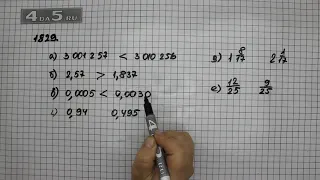 4DA5.RU
1829.
а) 3 001 257 < 3 010 256
б) 2,57 > 1,837
в) 0,0005 < 0,0030
г) 0,94 0,495
д) 1 8/17 2 1/17
е) 12/25 9/25